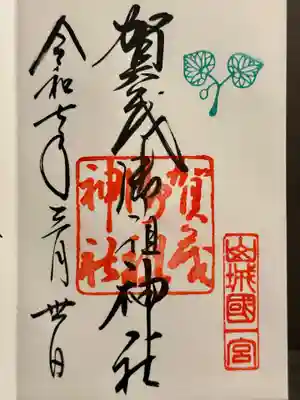 山城國一宮
賀茂御祖神社
賀茂御祖神社
令和七年三月卅日